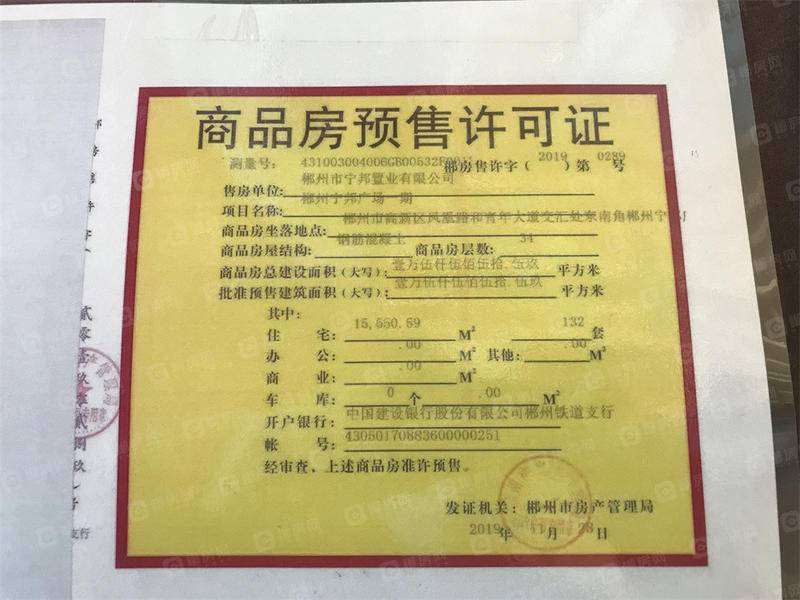 商品房预售许可证
测量号: 431003004006GB00532F001
郴房售许字(2019)第0289号
售房单位: 郴州市宁邦置业有限公司
项目名称: 郴州宁邦广场一期
商品房坐落地点: 郴州市高新区凤凰路和青年大道交汇处东南角郴州宁
商品房屋结构: 钢筋混凝土 商品房层数: 34
商品房总建设面积(大写): 壹万伍仟伍佰伍拾.伍玖 平方米
批准预售建筑面积(大写): 壹万伍仟伍佰伍拾.伍玖 平方米
其中:
住 宅: 15,550.59 M² 132 套
办 公: .00 M² 其他: .00 M²
商 业: .00 M²
车 库: 0 个 .00 M²
开户银行: 中国建设银行股份有限公司郴州铁道支行
帐 号: 43050170883600000251
经审查、上述商品房准许预售。
发证机关: 郴州市房产管理局
2019年11月28日